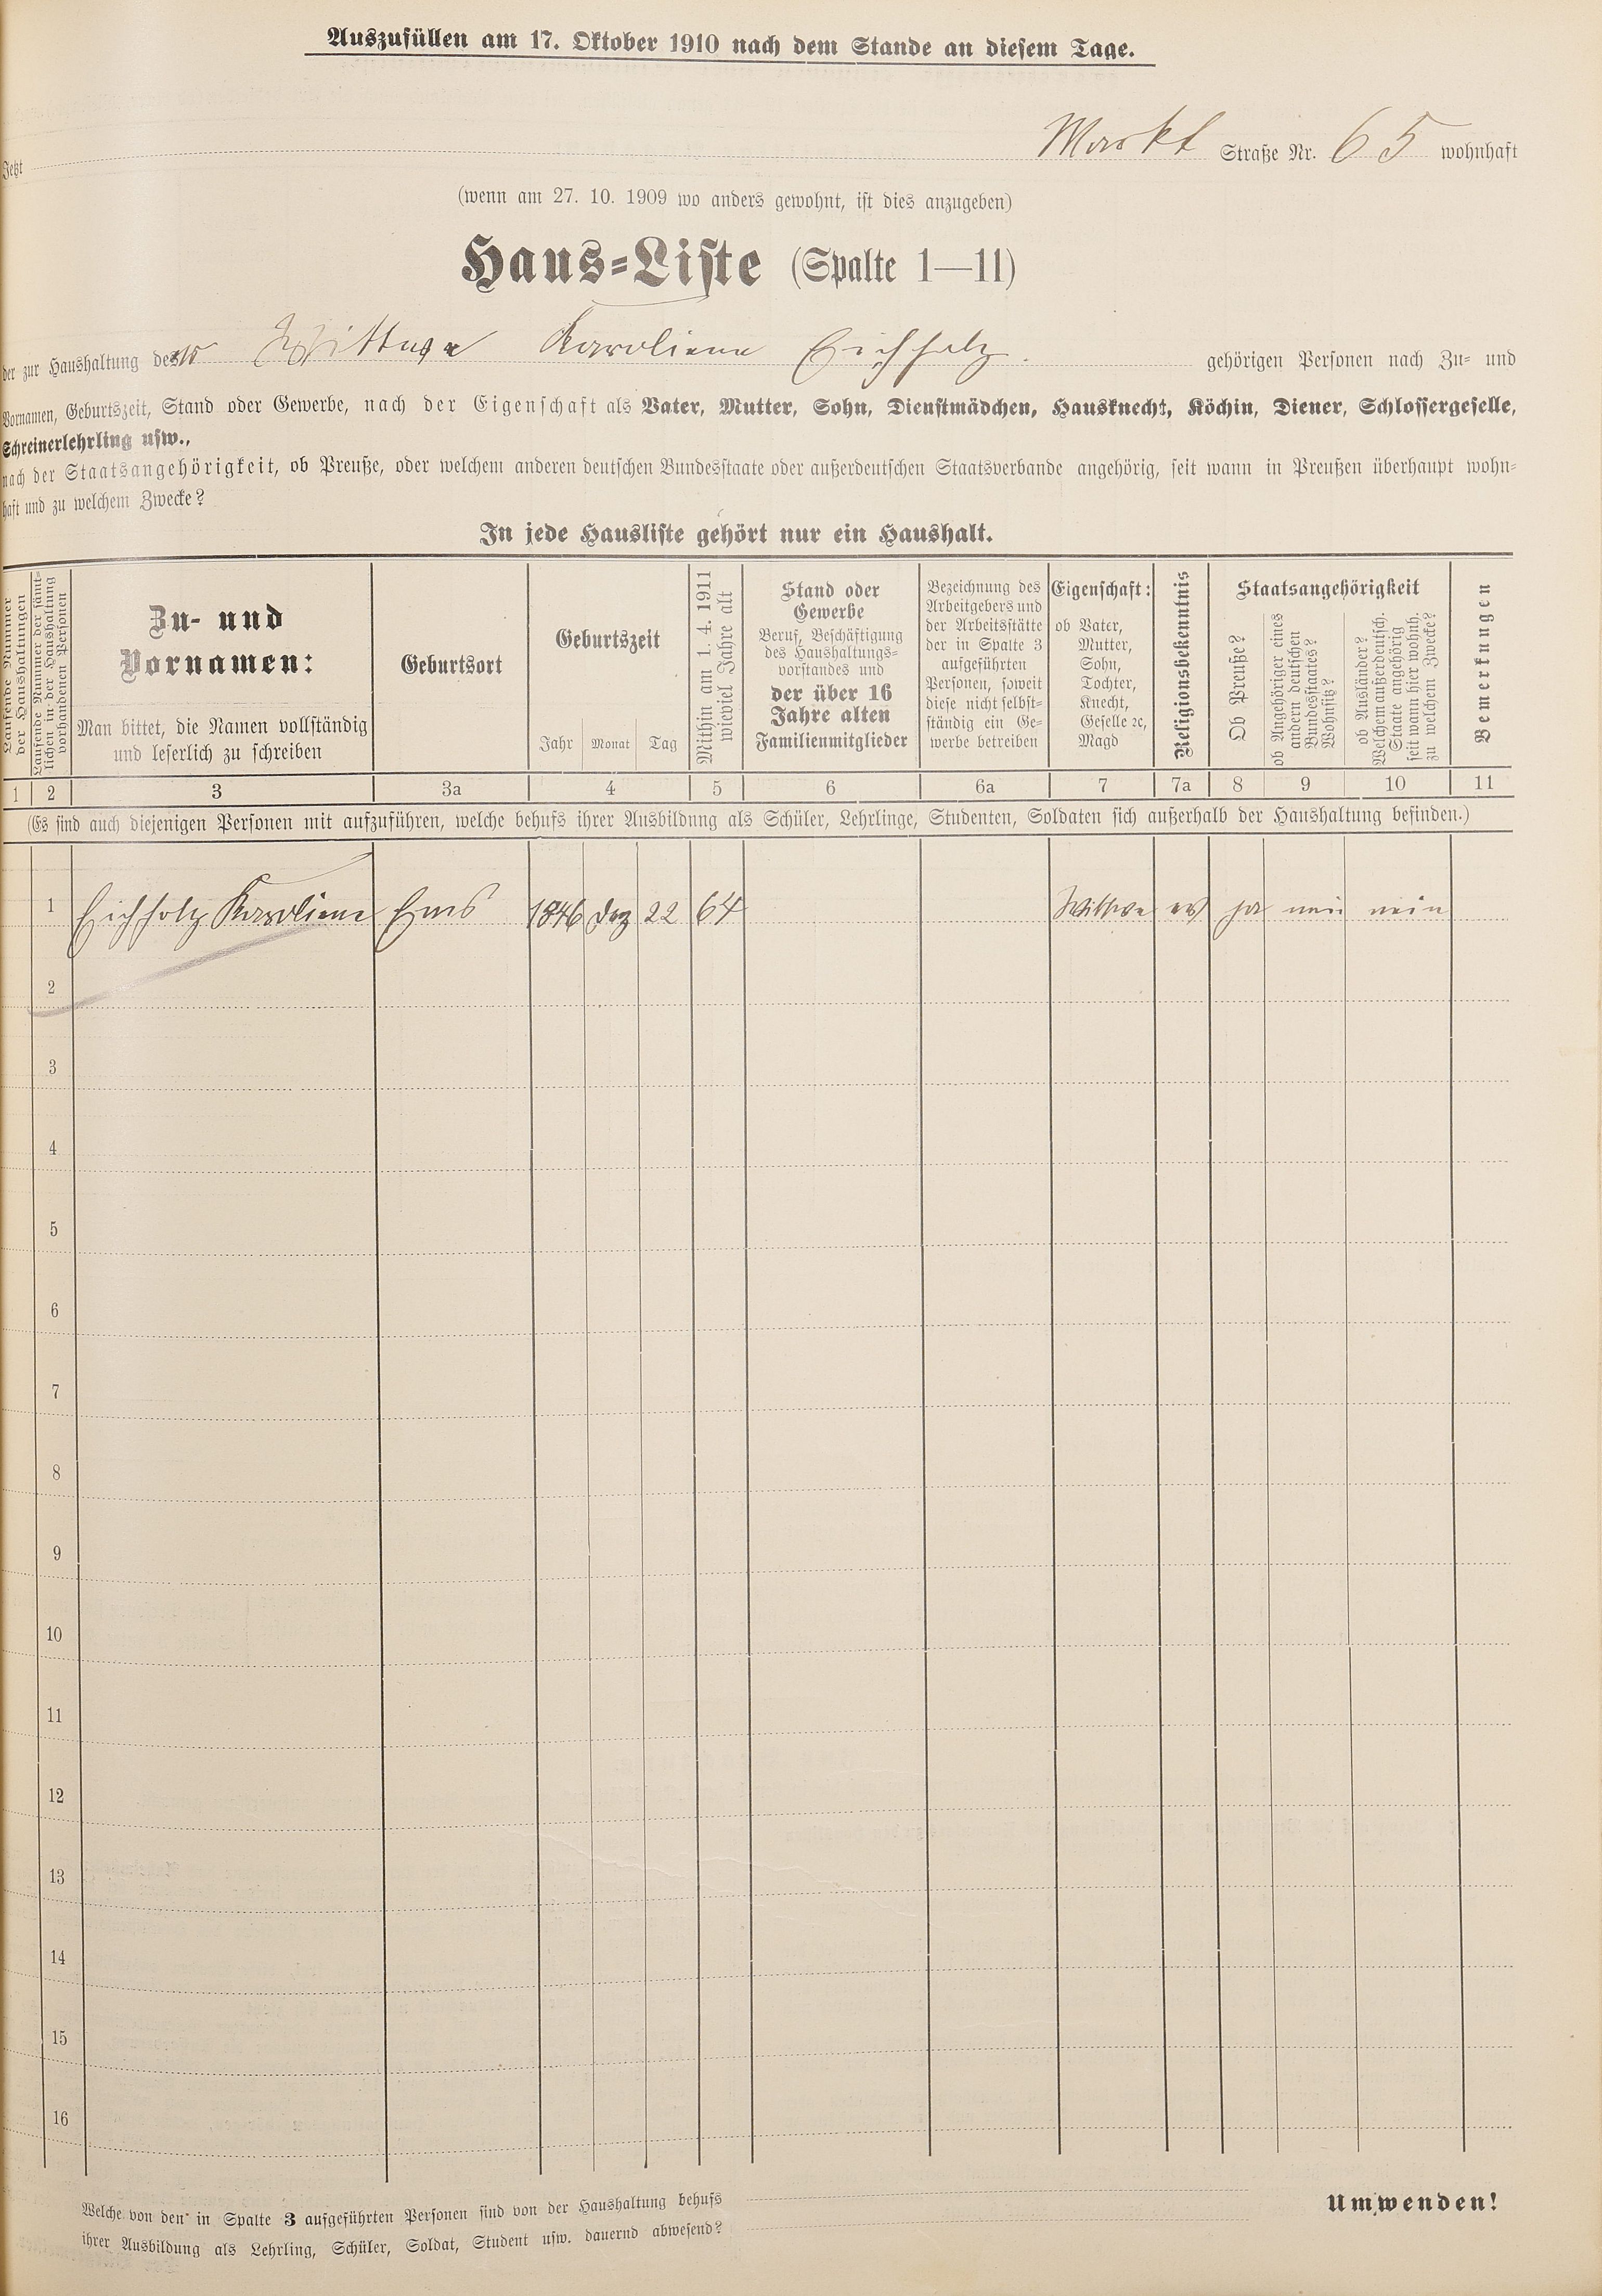 Auszufüllen am 17. Oktober 1910 nach dem Stande an diesem Tage.
Jetzt Markt Straße Nr. 65 wohnhaft
(wenn am 27. 10. 1909 wo anders gewohnt, ist dies anzugeben)
Haus-Liste (Spalte 1—11)
der zur Haushaltung des Wittwe Karoliene Eichholz. gehörigen Personen nach Zu- und
Vornamen, Geburtszeit, Stand oder Gewerbe, nach der Eigenschaft als Vater, Mutter, Sohn, Dienstmädchen, Hausknecht, Köchin, Diener, Schlossergeselle,
Schreinerlehrling usw.,
nach der Staatsangehörigkeit, ob Preuße, oder welchem anderen deutschen Bundesstaate oder außerdeutschen Staatsverbande angehörig, seit wann in Preußen überhaupt wohn-
haft und zu welchem Zwecke?
In jede Hausliste gehört nur ein Haushalt.
Laufende Nummer
der Haushaltungen
Laufende Nummer der sämt-
lichen in der Haushaltung
vorhandenen Personen
Zu- und
Vornamen:
Man bittet, die Namen vollständig
und leserlich zu schreiben
Geburtsort
Geburtszeit
Jahr Monat Tag
Mithin am 1. 4. 1911
wieviel Jahre alt
Stand oder
Gewerbe
Beruf, Beschäftigung
des Haushaltungs-
vorstandes und
der über 16
Jahre alten
Familienmitglieder
Bezeichnung des
Arbeitgebers und
der Arbeitsstätte
der in Spalte 3
aufgeführten
Personen, soweit
diese nicht selbst-
ständig ein Ge-
werbe betreiben
Eigenschaft:
ob Vater,
Mutter,
Sohn,
Tochter,
Knecht,
Geselle ꝛc,
Magd
Religionsbekenntnis
Staatsangehörigkeit
Ob Preuße?
ob Angehöriger eines
andern deutschen
Bundesstaates?
Wohnsitz?
ob Ausländer?
Welchem außerdeutsch.
Staate angehörig
seit wann hier wohnh.
zu welchem Zwecke?
Bemerkungen
1 2 3 3a 4 5 6 6a 7 7a 8 9 10 11
(Es sind auch diejenigen Personen mit aufzuführen, welche behufs ihrer Ausbildung als Schüler, Lehrlinge, Studenten, Soldaten sich außerhalb der Haushaltung befinden.)
1 Eichholz Karoliene Ems 1846 Dez 22 64 Wittwe ev ja nein nein
2
3
4
5
6
7
8
9
10
11
12
13
14
15
16
Welche von den in Spalte 3 aufgeführten Personen sind von der Haushaltung behufs
ihrer Ausbildung als Lehrling, Schüler, Soldat, Student usw. dauernd abwesend?
Umwenden!